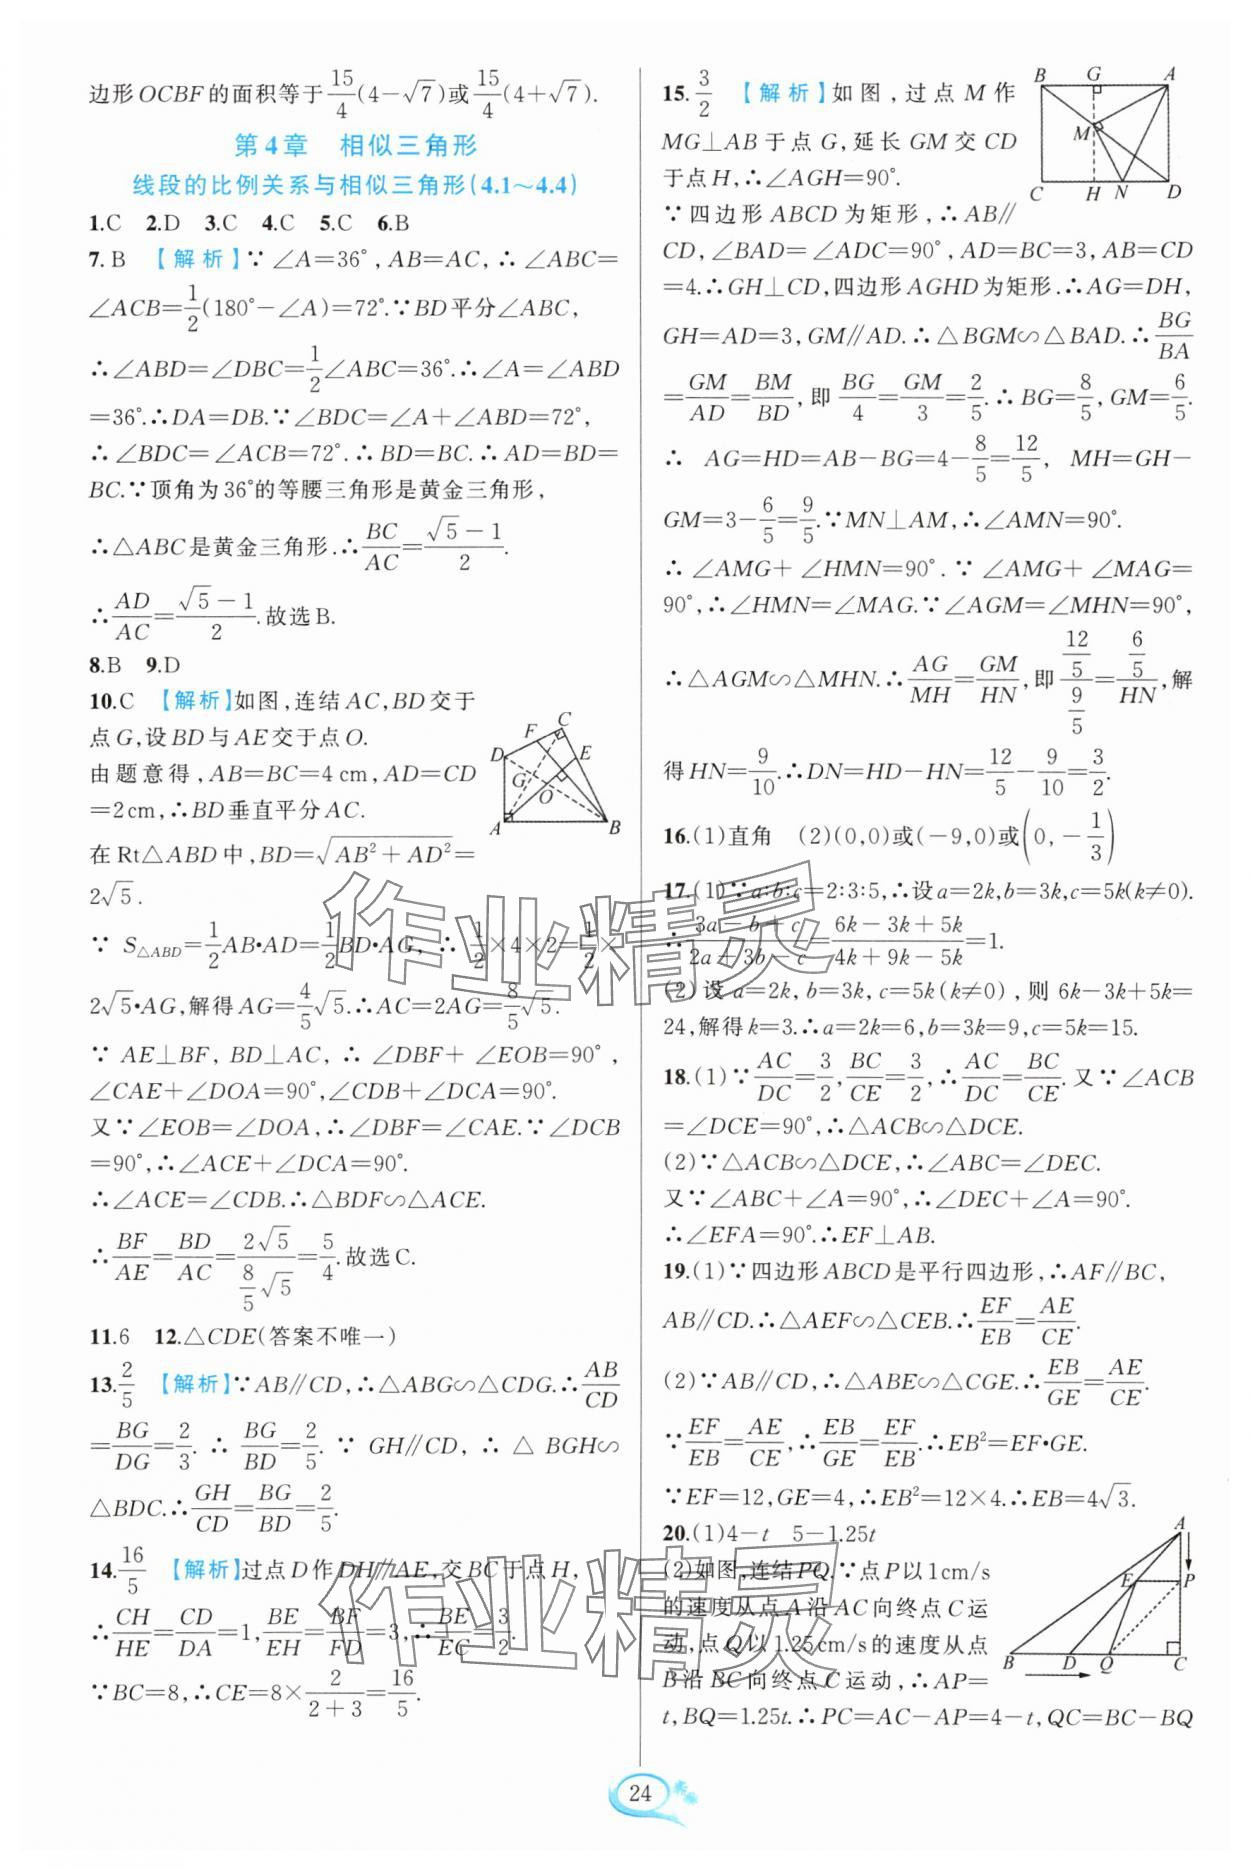 边形OCBF的面积等于15/4(4-√7)或15/4(4+√7).
第4章 相似三角形
线段的比例关系与相似三角形(4.1～4.4)
1.C 2.D 3.C 4.C 5.C 6.B
7.B 【解析】∵∠A=36°,AB=AC,∴∠ABC=
∠ACB=1/2(180°-∠A)=72°.∵BD平分∠ABC,
∴∠ABD=∠DBC=1/2∠ABC=36°.∴∠A=∠ABD
=36°.∴DA=DB.∵∠BDC=∠A+∠ABD=72°,
∴∠BDC=∠ACB=72°.∴BD=BC.∴AD=BD=
BC.∵顶角为36°的等腰三角形是黄金三角形,
∴△ABC是黄金三角形.∴BC/AC=(√5-1)/2.
∴AD/AC=(√5-1)/2.故选B.
8.B 9.D
10.C 【解析】如图,连结AC,BD交于
点G,设BD与AE交于点O.
由题意得,AB=BC=4 cm,AD=CD
=2cm,∴BD垂直平分AC.
D F C E G O A B
在Rt△ABD中,BD=√(AB²+AD²)=
2√5.
∵S△ABD=1/2AB•AD=1/2BD•AG,∴1/2×4×2=1/2×
2√5•AG,解得AG=4/5√5.∴AC=2AG=8/5√5.
∵AE⊥BF,BD⊥AC,∴∠DBF+∠EOB=90°,
∠CAE+∠DOA=90°,∠CDB+∠DCA=90°.
又∵∠EOB=∠DOA,∴∠DBF=∠CAE.∵∠DCB
=90°,∴∠ACE+∠DCA=90°.
∴∠ACE=∠CDB.∴△BDF∽△ACE.
∴BF/AE=BD/AC=2√5/(8/5√5)=5/4.故选C.
11.6 12.△CDE(答案不唯一)
13.2/5 【解析】∵AB∥CD,∴△ABG∽△CDG.∴AB/CD
=BG/DG=2/3.∴BG/BD=2/5.∵GH∥CD,∴△BGH∽
△BDC.∴GH/CD=BG/BD=2/5.
14.16/5 【解析】过点D作DH∥AE,交BC于点H,
∴CH/HE=CD/DA=1,BE/EH=BF/FD=3,∴BE/EC=3/2.
∵BC=8,∴CE=8×2/(2+3)=16/5.
15.3/2 【解析】如图,过点M作
MG⊥AB于点G,延长GM交CD
于点H,∴∠AGH=90°.
B G A M C H N D
∵四边形ABCD为矩形,∴AB∥
CD,∠BAD=∠ADC=90°,AD=BC=3,AB=CD
=4.∴GH⊥CD,四边形AGHD为矩形.∴AG=DH,
GH=AD=3,GM∥AD.∴△BGM∽△BAD.∴BG/BA
=GM/AD=BM/BD,即BG/4=GM/3=2/5.∴BG=8/5,GM=6/5.
∴AG=HD=AB-BG=4-8/5=12/5,MH=GH-
GM=3-6/5=9/5.∵MN⊥AM,∴∠AMN=90°.
∴∠AMG+∠HMN=90°.∵∠AMG+∠MAG=
90°,∴∠HMN=∠MAG.∵∠AGM=∠MHN=90°,
∴△AGM∽△MHN.∴AG/MH=GM/HN,即(12/5)/(9/5)=(6/5)/HN,解
得HN=9/10.∴DN=HD-HN=12/5-9/10=3/2.
16.(1)直角 (2)(0,0)或(-9,0)或(0,-1/3)
17.(1)∵a:b:c=2:3:5,∴设a=2k,b=3k,c=5k(k≠0).
∴(3a-b+c)/(2a+3b-c)=(6k-3k+5k)/(4k+9k-5k)=1.
(2)设a=2k,b=3k,c=5k(k≠0),则6k-3k+5k=
24,解得k=3.∴a=2k=6,b=3k=9,c=5k=15.
18.(1)∵AC/DC=3/2,BC/CE=3/2,∴AC/DC=BC/CE.又∵∠ACB
=∠DCE=90°,∴△ACB∽△DCE.
(2)∵△ACB∽△DCE,∴∠ABC=∠DEC.
又∵∠ABC+∠A=90°,∴∠DEC+∠A=90°.
∴∠EFA=90°.∴EF⊥AB.
19.(1)∵四边形ABCD是平行四边形,∴AF∥BC,
AB∥CD.∴△AEF∽△CEB.∴EF/EB=AE/CE.
(2)∵AB∥CD,∴△ABE∽△CGE.∴EB/GE=AE/CE.
∵EF/EB=AE/CE,∴EB/GE=EF/EB.∴EB²=EF•GE.
∵EF=12,GE=4,∴EB²=12×4.∴EB=4√3.
20.(1)4-t 5-1.25t
(2)如图,连结PQ.∵点P以1cm/s
的速度从点A沿AC向终点C运
动,点Q以1.25cm/s的速度从点
B沿BC向终点C运动,∴AP=
A E P B D Q C
t,BQ=1.25t.∴PC=AC-AP=4-t,QC=BC-BQ
24
作业精灵
作业精灵